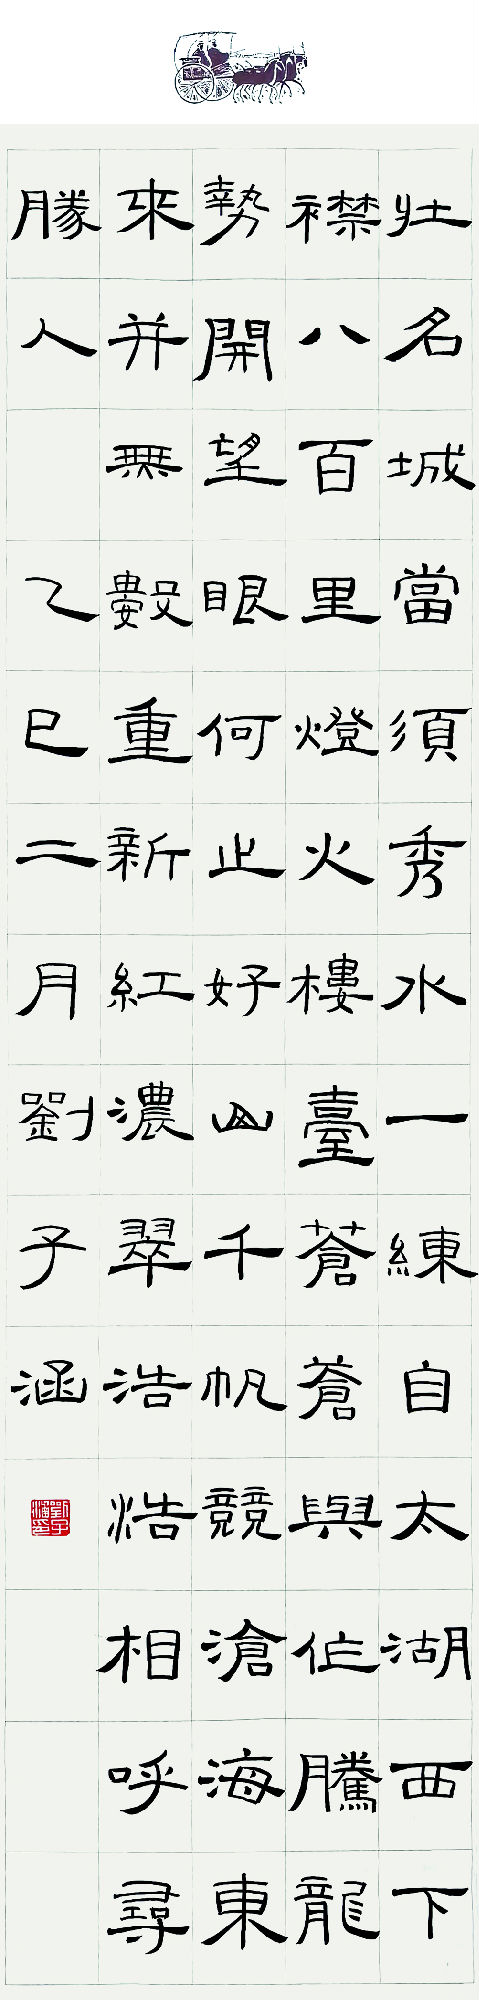 壯名城當須秀水一練自太湖西下
襟八百里燈火樓臺蒼蒼與作騰龍
勢開望眼何止好山千帆競滄海東
來并無數重新紅濃翠浩浩相呼尋
勝人 乙巳二月劉子涵
劉子涵印